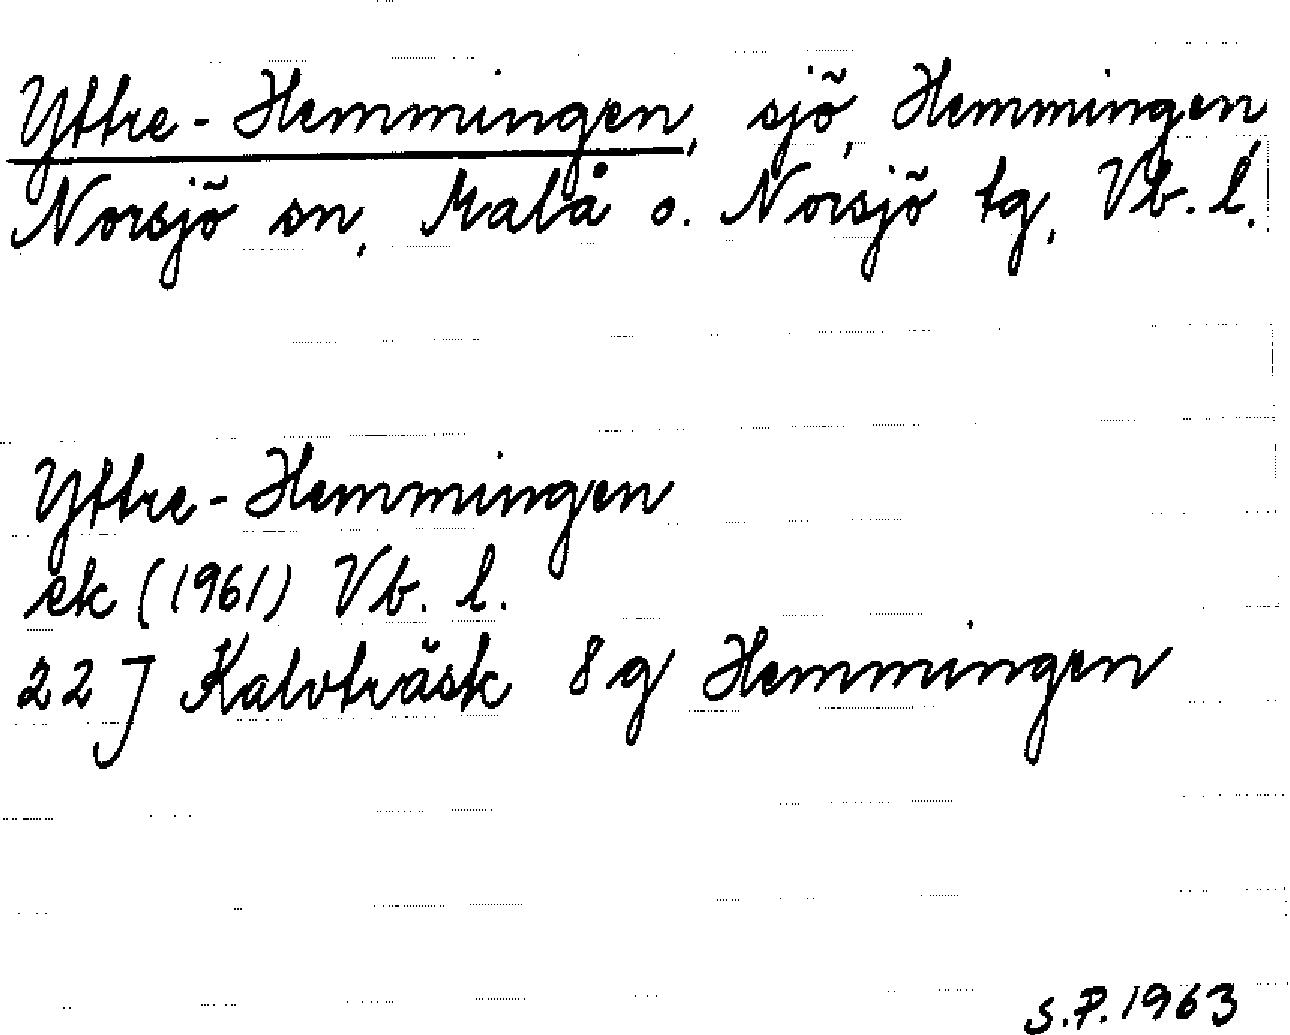 Yttre-Hemmingen, sjö, Hemmingen,
Norsjö sn, Malå o. Norsjö tg, Vb. l.
Yttre-Hemmingen
ek (1961) Vb. l.
22 J Kalvträsk 8g Hemmingen
S.P. 1963